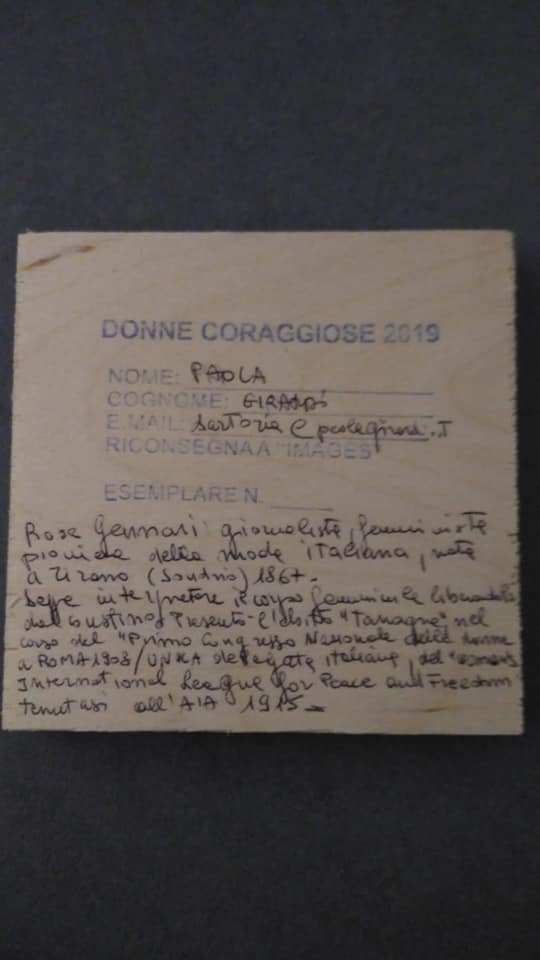 DONNE CORAGGIOSE 2019
NOME: PAOLA
COGNOME: GIRARDI
E.MAIL: sartoria@paolagirardi.it
RICONSEGNA A "IMAGES"
ESEMPLARE N.
Rosa Gennari: giornalista, femminista
pioniera della moda italiana, nata
a Tirano (Sondrio) 1867.
Seppe interpretare il corpo femminile liberandolo
dal bustino. Presentò l'abito "Tanagra" nel
corso del "Primo Congresso Nazionale delle donne
a ROMA 1908/UNICA delegata italiana, del "Women's
International League for Peace and Freedom
tenutasi all'AIA 1915.